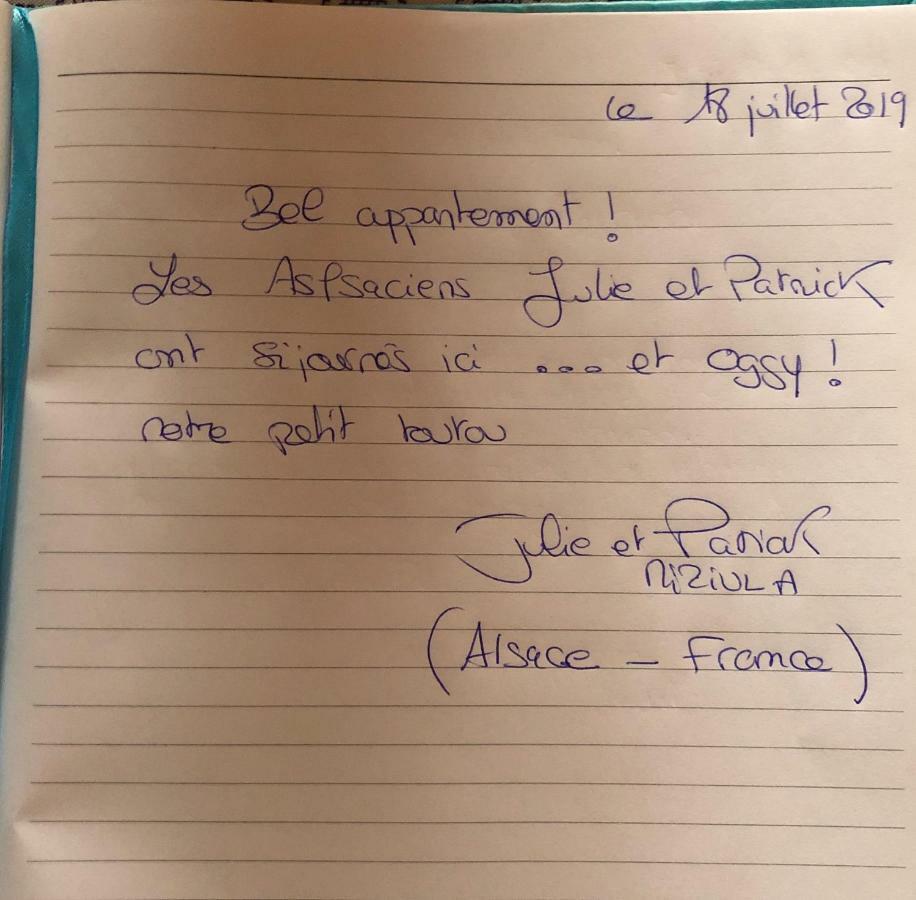 le 18 juillet 2019
Bel appartement !
Les Alsaciens Julie et Patrick
ont séjournés ici ... et Oggy !
notre petit toutou
Julie et Patrick
(Alsace - France)